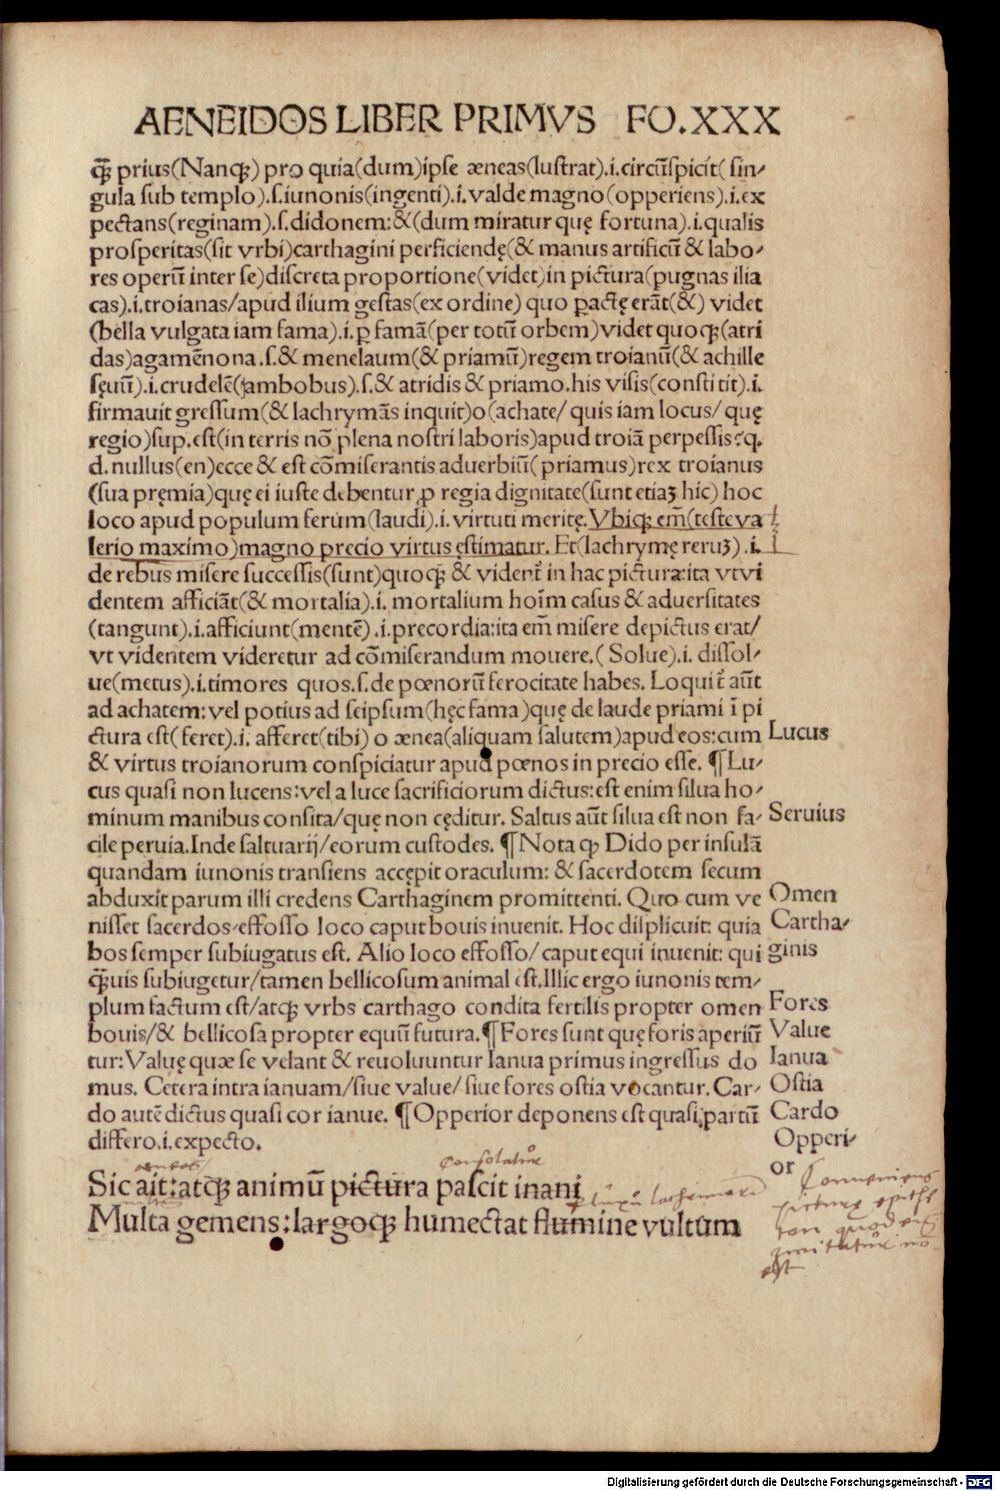 AENEIDOS LIBER PRIMVS FO.XXX
qꝫ prius(Nanqꝫ) pro quia(dum)ipse æneas(lustrat).i.circūspicit( sin-
gula sub templo).s.iunonis(ingenti).i.valde magno(opperiens).i.ex
pectans(reginam).s.didonem:&(dum miratur quę fortuna).i.qualis
prosperitas(sit vrbi)carthagini perficiendę(& manus artificū & labo-
res operū inter se)discreta proportione(videt)in pictura(pugnas ilia
cas).i.troianas/apud ilium gestas(ex ordine) quo ꝑactę erāt(&) videt
(bella vulgata iam fama).i.ꝑ famā(per totū orbem)videt quoqꝫ(atri
das)agamēnona.s.& menelaum(& priamū)regem troianū(& achille
sęuū).i.crudelē(ambobus).s.& atridis & priamo.his visis(constitit).i.
firmauit gressum(& lachrymās inquit)o(achate/ quis iam locus/ quę
regio)sup.est(in terris nō plena nostri laboris)apud troiā perpessis?q.
d.nullus(en)ecce & est cōmiserantis aduerbiū(priamus)rex troianus
(sua pręmia)quę ei iuste debentur ꝓ regia dignitate(sunt etiaꝫ hic) hoc
loco apud populum ferum(laudi).i.virtuti meritę.Vbiqꝫ em̄(teste va
lerio maximo)magno precio virtus ęstimatur. Et(lachrymę reruꝫ).i.
de rebus misere successis(sunt)quoqꝫ & vident̄ in hac pictura:ita vt vi
dentem afficiāt(& mortalia).i. mortalium hoīm casus & aduersitates
(tangunt).i.afficiunt(mentē).i.precordia:ita em̄ misere depictus erat/
vt videntem videretur ad cōmiserandum mouere.( Solue).i. dissol-
ue(metus).i.timores quos.s.de pœnorū ferocitate habes. Loquit̄ aūt
ad achatem:vel potius ad seipsum(hęc fama)quę de laude priami ī pi
ctura est(feret).i. afferet(tibi) o ænea(aliquam salutem)apud eos:cum
Lucus
& virtus troianorum conspiciatur apud pœnos in precio esse. ¶Lu-
cus quasi non lucens:vel a luce sacrificiorum dictus:est enim silua ho-
minum manibus consita/quę non cęditur. Saltus aūt silua est non fa-
Seruius
cile peruia.Inde saltuarij/eorum custodes. ¶Nota qꝫ Dido per insulā
quandam iunonis transiens accępit oraculum: & sacerdotem secum
abduxit parum illi credens Carthaginem promittenti. Quo cum ve
Omen
nisset sacerdos/effosso loco caput bouis inuenit. Hoc displicuit: quia
Cartha-
bos semper subiugatus est. Alio loco effosso/caput equi inuenit: qui
ginis
qꝫuis subiugetur/tamen bellicosum animal est.Illic ergo iunonis tem-
plum factum est/atqꝫ vrbs carthago condita fertilis propter omen
Fores
bouis/& bellicosa propter equū futura.¶Fores sunt quę foris aperiū
Value
tur:Valuę quæ se velant & reuoluuntur Ianua primus ingressus do
Ianua
mus. Cetera intra ianuam/siue value/siue fores ostia vocantur. Car-
Ostia
do autē dictus quasi cor ianue. ¶Opperior deponens est quasi partū
Cardo
differo.i.expecto.
Opperi-
or
aeneas
Sic ait:atqꝫ animū pictura pascit inani
Multa gemens:largoqꝫ humectat flumine vultum
est
Digitalisierung gefördert durch die Deutsche Forschungsgemeinschaft - DFG